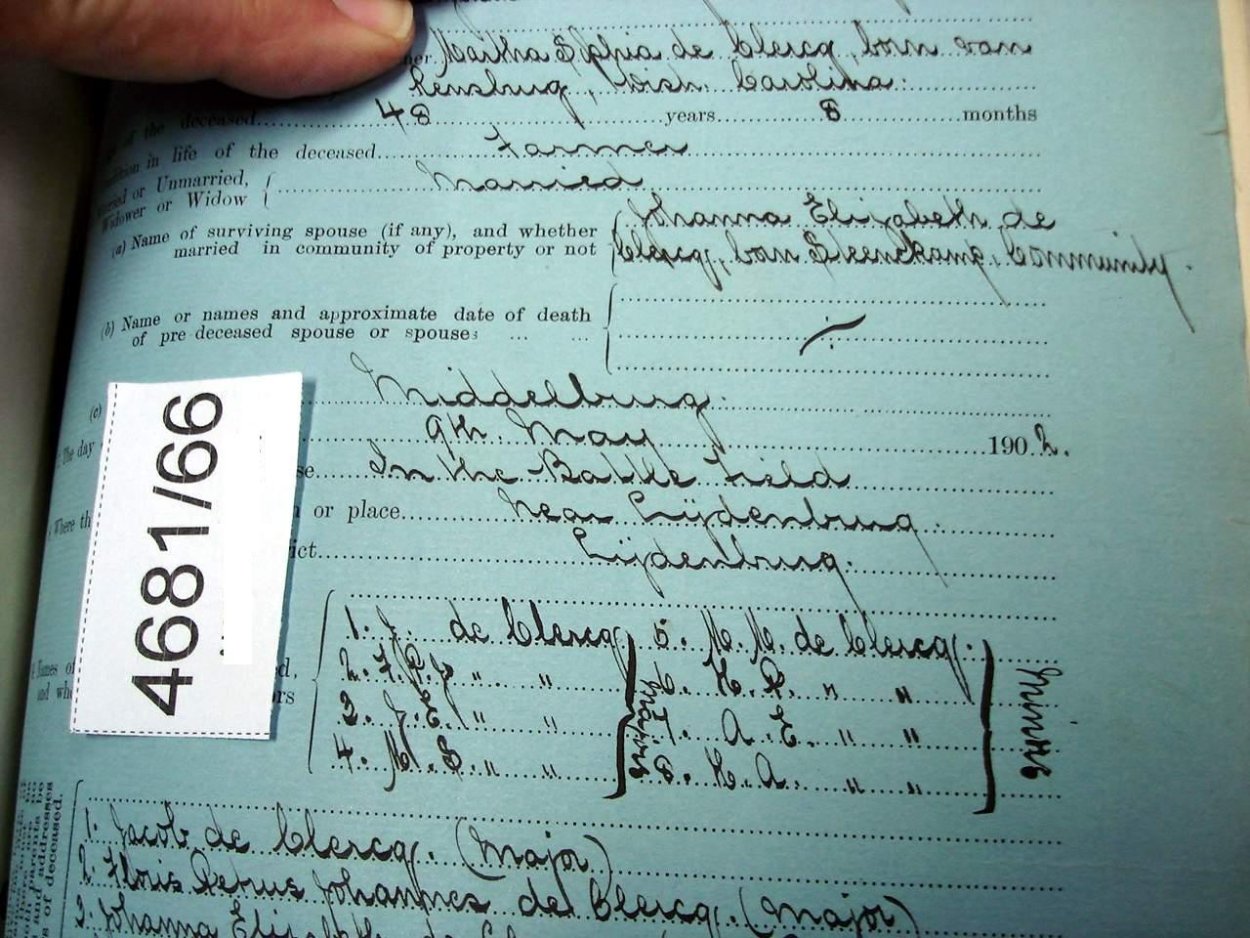 Martha Sophia de Clercq, born van
Rensburg, Distr. Carolina.
of the deceased 48 years 8 months
in life of the deceased Farmer
or Unmarried, Married
Widower or Widow
(a) Name of surviving spouse (if any), and whether Johanna Elizabeth de
married in community of property or not Clercq, born Steenekamp. Community.
(b) Name or names and approximate date of death
of pre deceased spouse or spouses ... ...
(c) Middelburg.
The day 9th. May 1902.
se In the Battle Field
Where th or place Near Lijdenburg.
ict Lijdenburg.
1. J. de Clercq 5. M. M. de Clercq.
2. F. P. J. " " 6. H. P. " "
3. J. E. " " 7. A. E. " "
4. M. S. " " 8. H. A. " "
Majors
Minors
4681/66
Names of
1. Jacob de Clercq. (Major)
2. Floris Petrus Johannes de Clercq. (Major)
3. Johanna
of deceased.